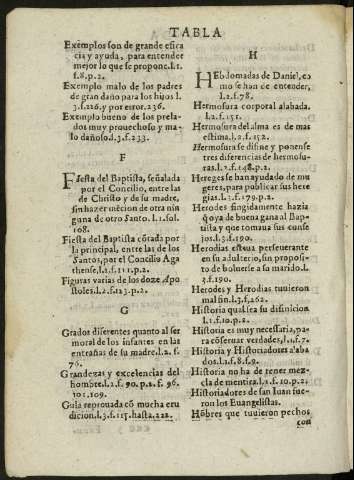 TABLA
Exemplos son de grande efica
cia y ayuda, para entender
mejor lo que se propone.l.1.
f.8.p.2.
Exemplo malo de los padres
de gran daño para los hijos l.
3.f.226.y por error.236.
Exemplo bueno de los prela-
dos muy prouechoso y ma-
lo dañoso.l.3.f.233.
F
Fiesta del Baptista, señalada
por el Concilio, entre las
de Christo y de su madre,
sin hazer mẽcion de otra nin
guna de otro Santo. l.1.fol.
108.
Fiesta del Baptista cõtada por
la principal, entre las de los
Santos, por el Concilio Aga
thense,l.1.f.111.p.2.
Figuras varias de los doze Apo
stoles.l.2.f.123.p.2.
G
Grados diferentes quanto al ser
moral de los infantes en las
entrañas de su madre.l.2. f.
76.
Grandezas y excelencias del
hombre.l.1.f. 90. p.2. f. 96.
101.109.
Gula reprouada cõ mucha eru
dicion.l.3.f.115.hasta.222.
H
HEbdomadas de Daniel, co
mo se han de entender,
l.2.f.78.
Hermosura corporal alabada.
l.2.f.151.
Hermosura del alma es de mas
estima.l.2.f.152.
Hermosura se difine y ponense
tres diferencias de hermosu-
ras.l.2.f.148.p.2.
Hereges se han ayudado de mu
geres, para publicar sus here
gias.l.3.f.179.p.2.
Herodes fingidamente hazia
q̃ oya de buena gana al Bap-
tista y que tomaua sus conse
jos.l.3.f.190.
Herodias estuuo perseuerante
en su adulterio, sin proposi-
to de boluerse a su marido.l.
3.f.190.
Herodes y Herodias tuuieron
mal fin.l.3.f.262.
Historia qual sea su difinicion
l.1.f.10.p.2.
Historia es muy necessaria, pa-
ra cõseruar verdades, l.1.f.7.
Historia y Historiadores alaba
dos.l.1.f.8.f.9.
Historia no ha de tener mez-
cla de mentira.l.1.f.10.p.2.
Historiadores de san Iuan fue-
ron los Euangelistas.
Hõbres que tuuieron pechos
con